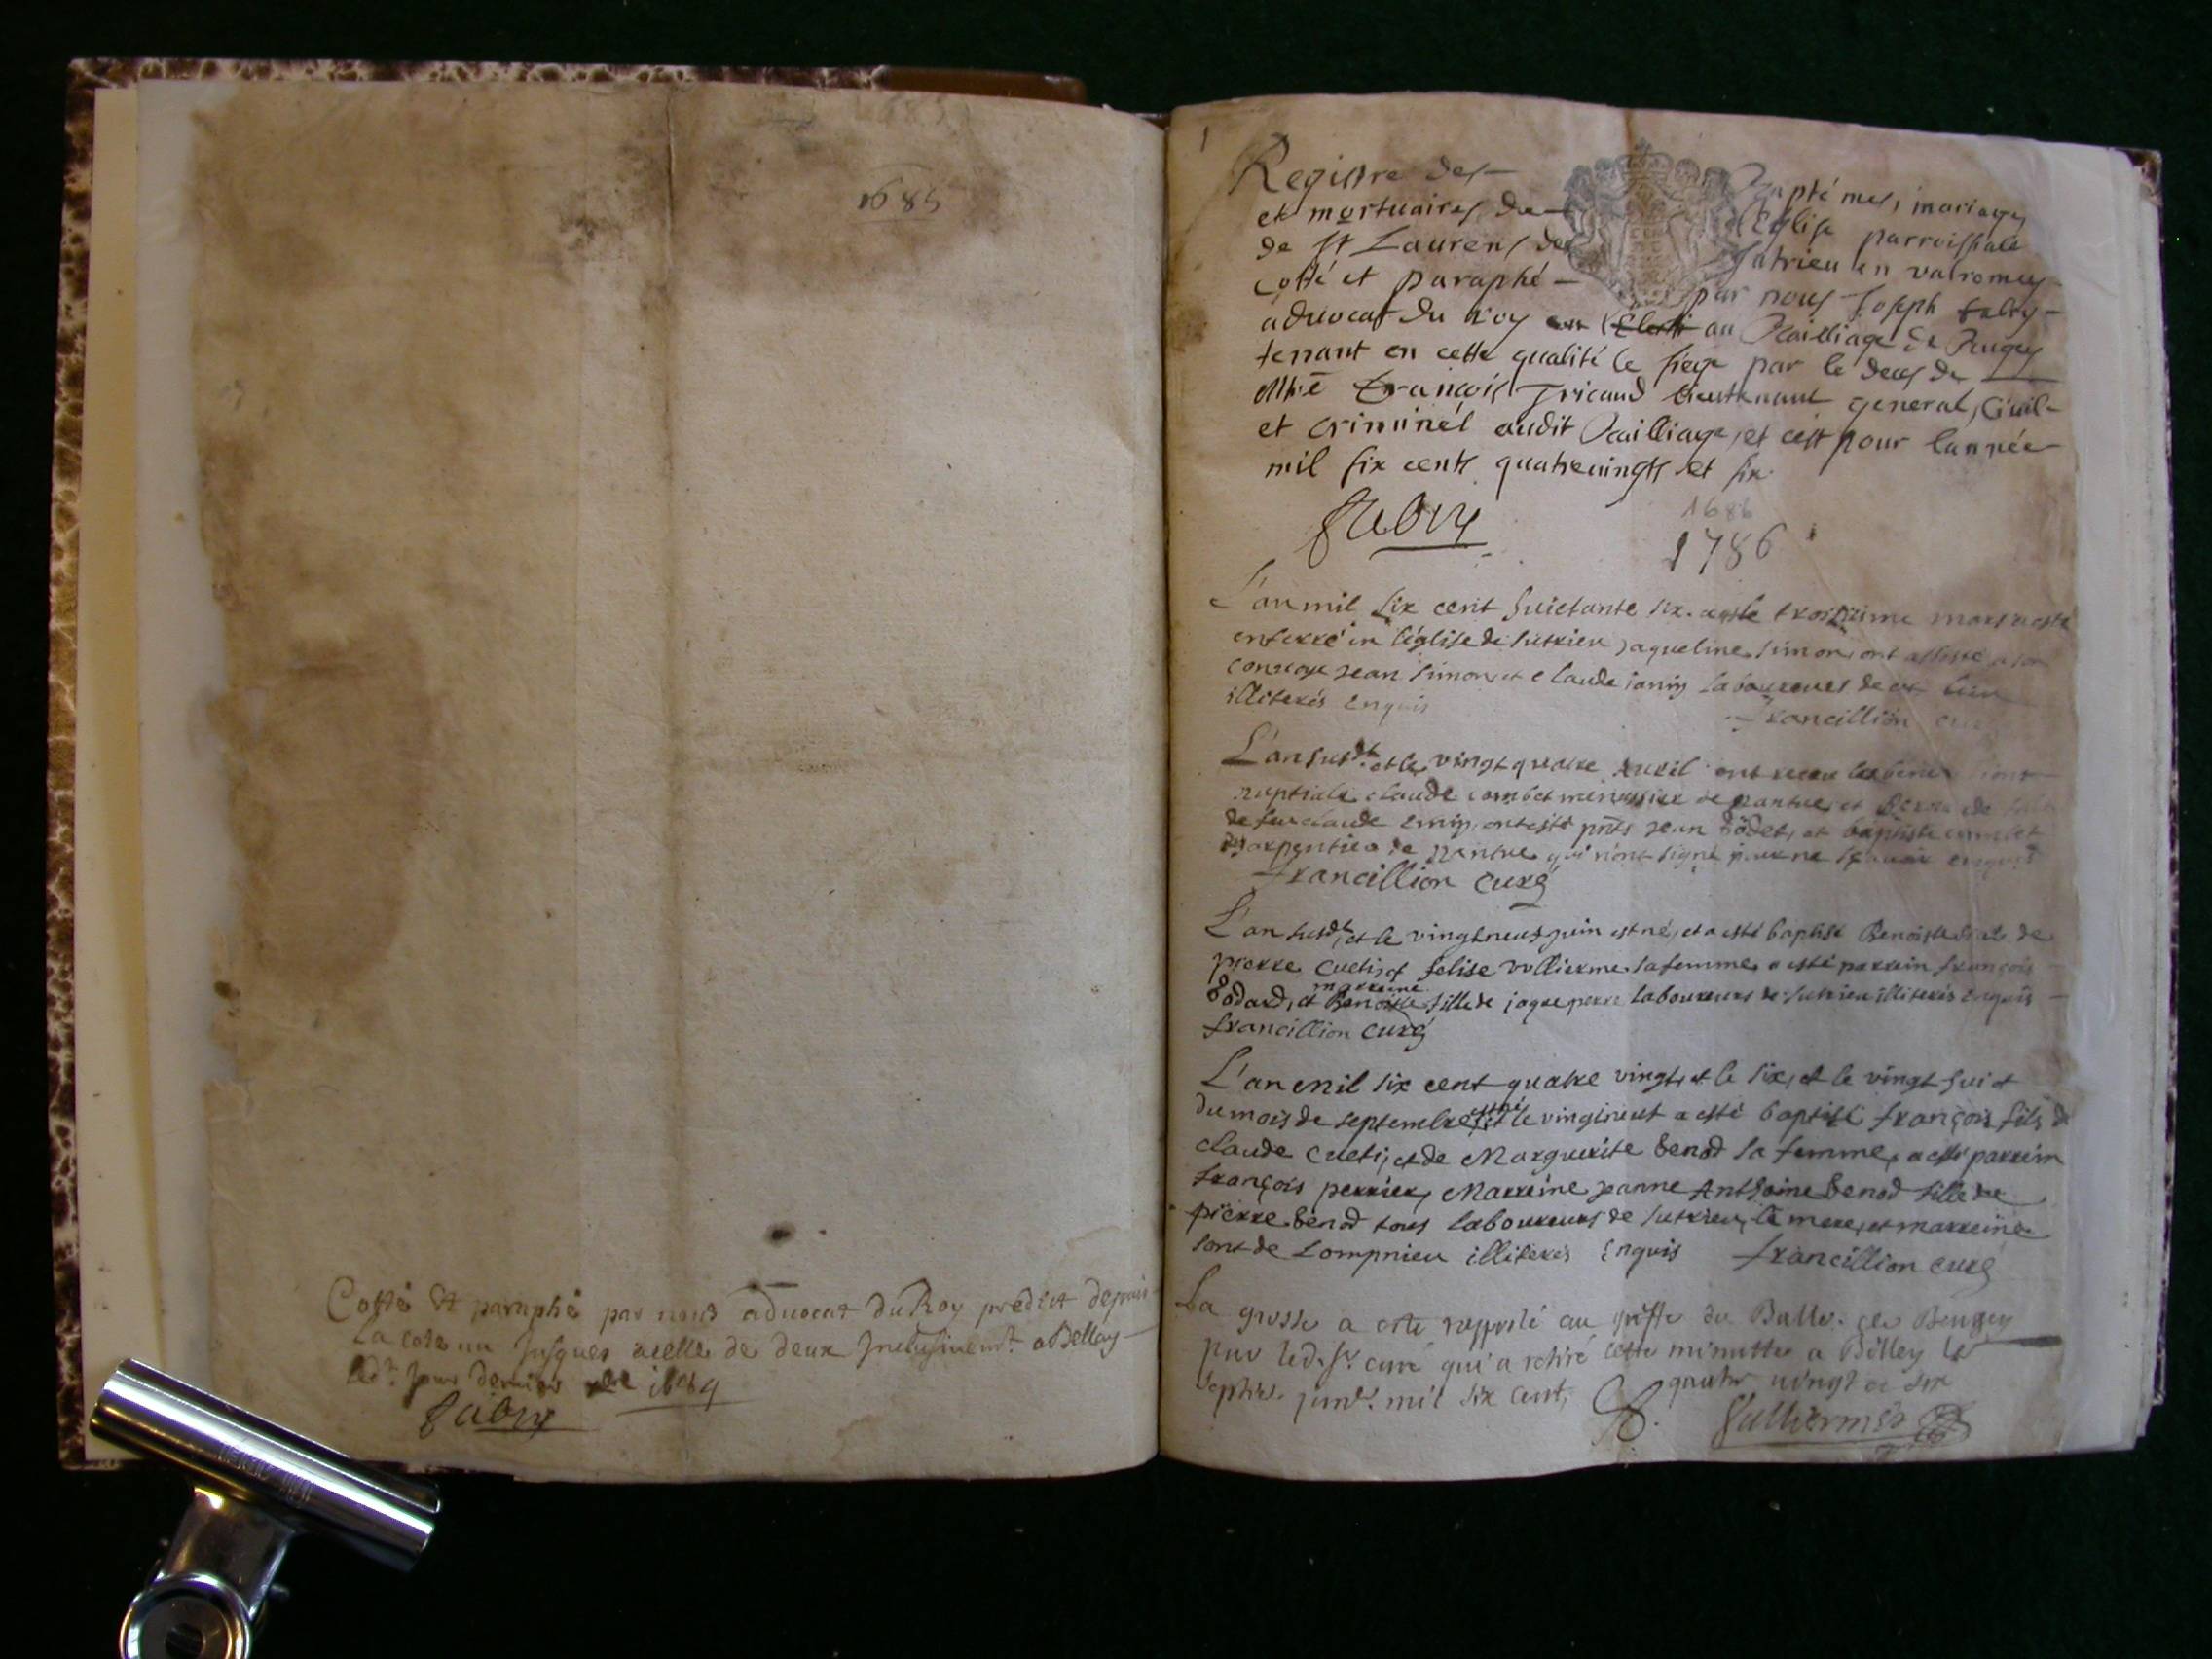 1685
Cotté Et paraphé par nous advocat du Roy predict depuis
La cote un Jusques acelle de deux Inclusivemt. a Belley
led. Jour dernier xbre 1684
Fabry
1
Registre des baptémes, mariages
et mortuaires de l'Eglise parroissiale
de st Laurens de Sutrieu en valromey
cotté et paraphé par nous Joseph fabry
advocat du roy au Bailliage de Bugey
tenant en cette qualité le siege par le deces de
Mre François Tricaud lieutenant general, Civil
et criminel audit Bailliage, et c'est pour l'année
mil six cents quatrevingts et six
Fabry
1686
1786
L'an mil six cent huictante six. et le troisieme mars a esté
enterré en l'église de sutrieu Jaqueline simon, ont assisté a son
convoye Jean simon, et claude janin laboureurs de ce lieu
illiterés enquis
francillion curé
L'an susdt. et le vingt quatre Avril ont receu les
nuptiale claude combet menusier de nantue, et
de feu claude ont esté pnts Jean Bodet, et baptiste combet
charpentier de nantue qui n'ont signé pour ne sçavoir enquis
francillion curé
L'an susdt, et le vingtneuf juin est né, et a esté baptisé Benoiste de
pierre Cueti, et felise vullierme sa femme, a esté parrein françois
Bodard, et marreine Benoiste fille de jaque perrr laboureurs de sutrieu illiterés enquis
francillion curé
L'an mil six cent quatre vingt, et le six, et le vingt huict
du mois de septembre est né et le vingtneuf a esté baptisé françois fils de
claude Cueti, et de Marguerite benod sa femme, a esté parrein
françois perrier, Marreine Janne Anthoine benod fille de
pierre benod tous laboureurs de sutrieu, la mere, et marreine
sont de Lompnieu illiterés Enquis francillion curé
La grosse a esté rapporté au greffe du Ballie. de Beugey
par led. sr. curé qui a retiré cette minutte a Belley le
septie. janvr. mil six cent, quatre vingt et sept